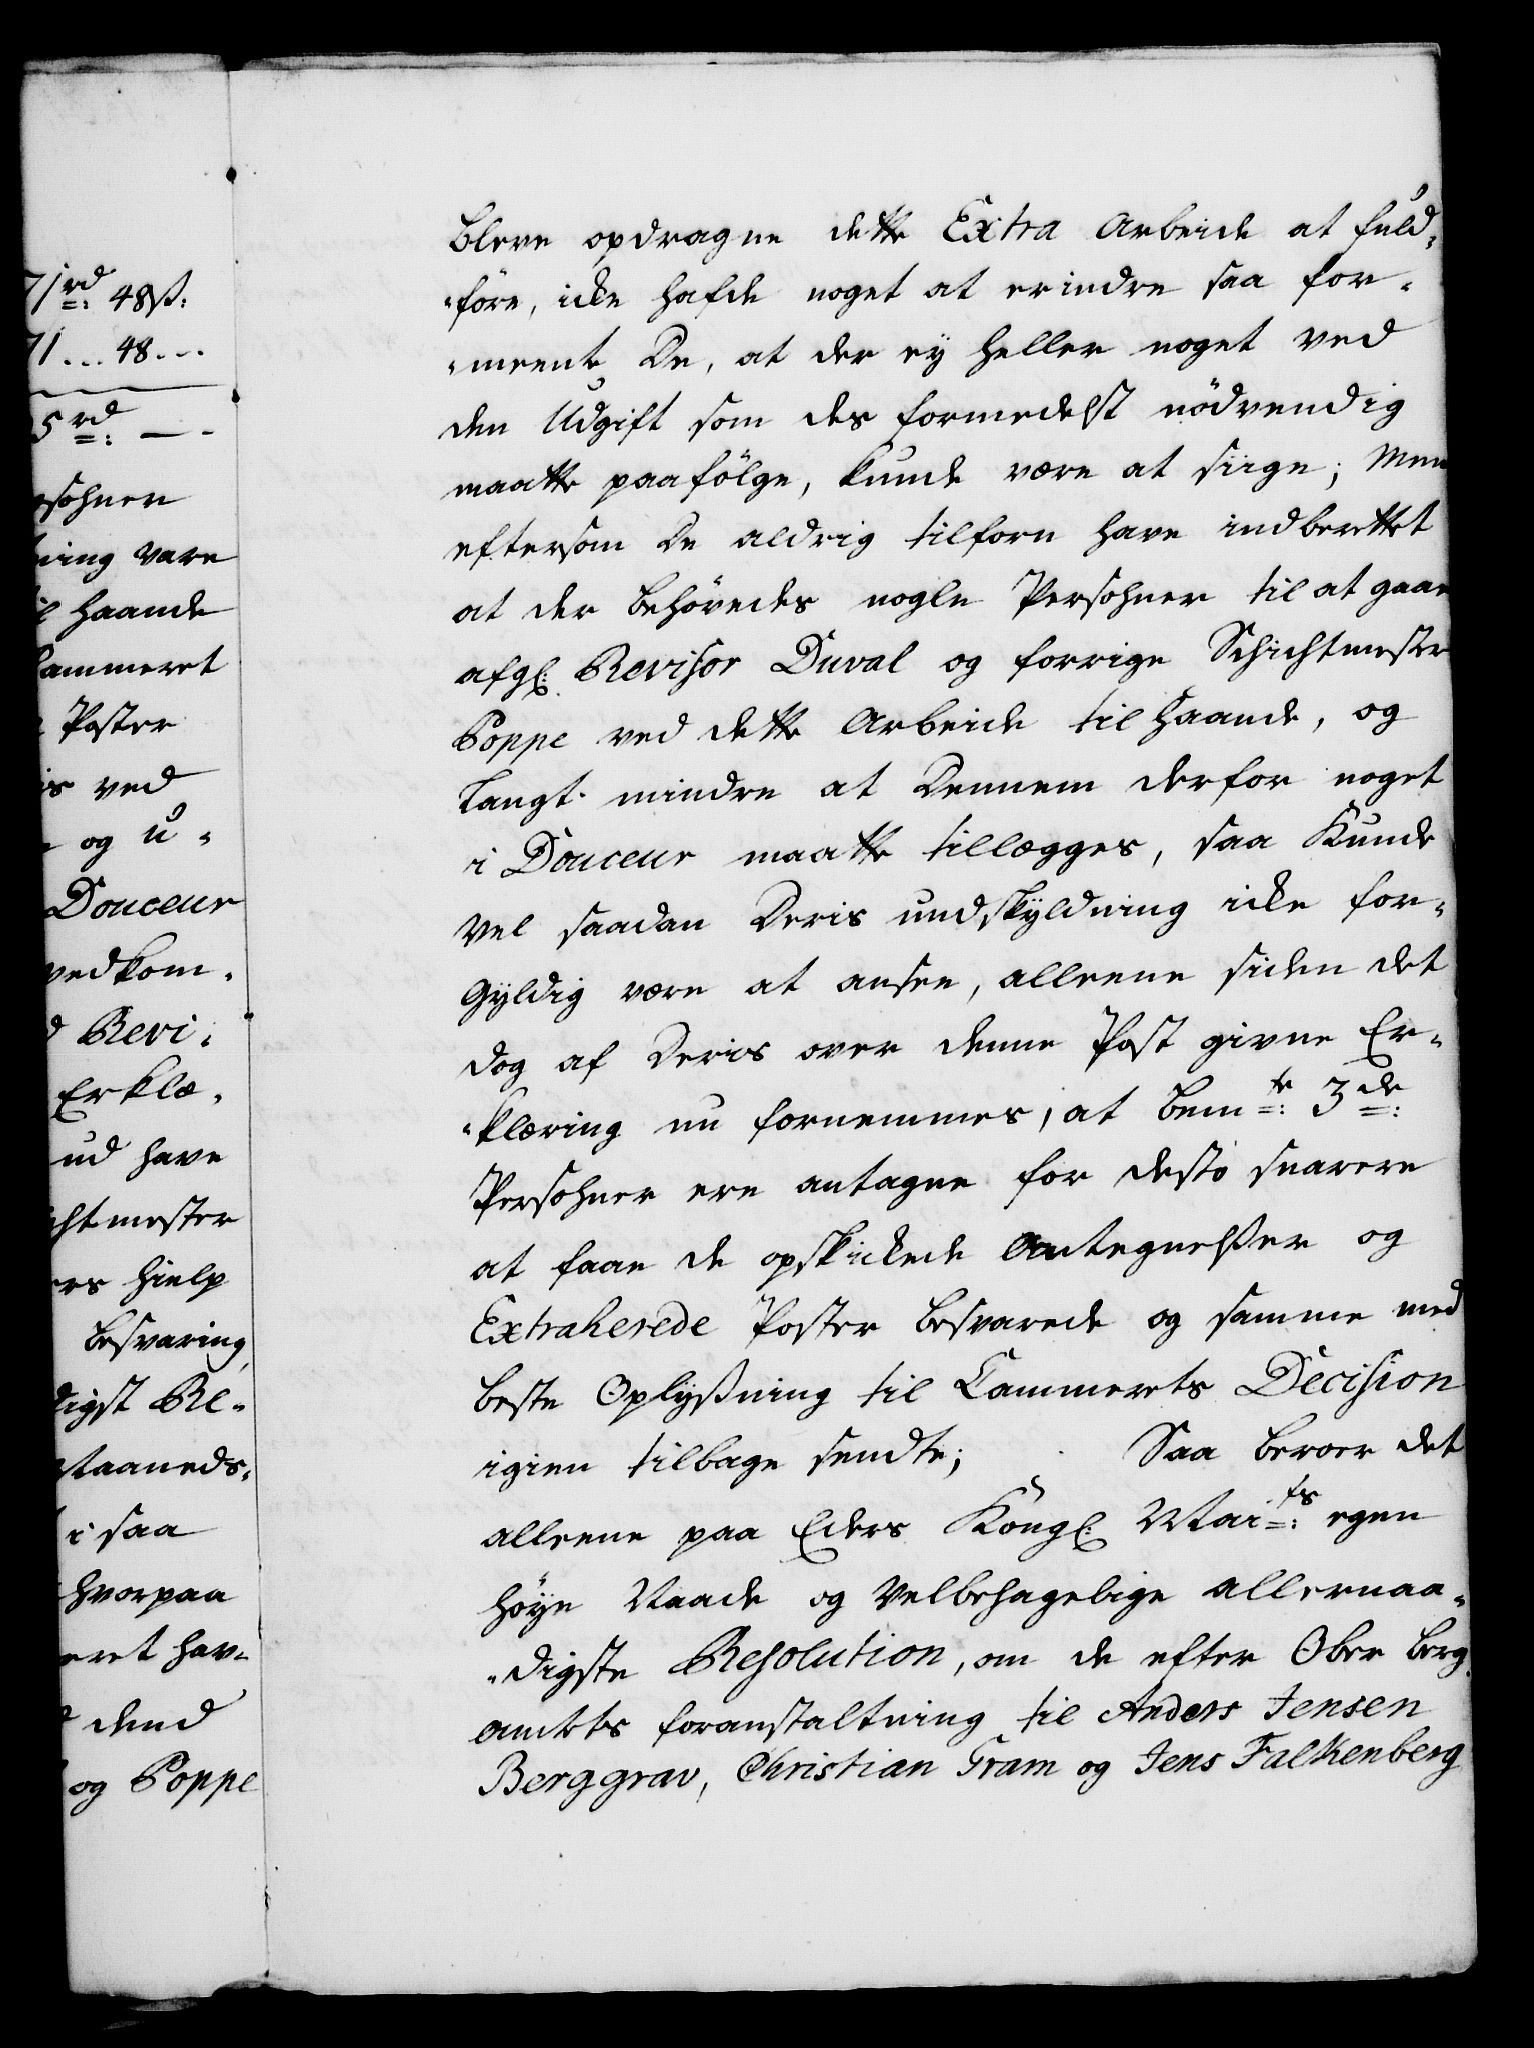 71rd: 48ß:
71 ... 48 ...
5rd: — -
sohner
ning vare
il haande
Cammeret
Poster
is ved
og u-
Douceur
vedkom-
Revi-
Erklæ-
ud have
chtmester
ers hielp
besvaring
digst Re-
Maaneds-
i saa
hvorpaa
eret hav-
dend
og Poppe
bleve opdragne dette Extra Arbeide at fuld-
-före, icke hafde noget at erindre saa for-
-meente De, at der ey heller noget ved
den Udgift som des formedelst nödvendig
maatte paafölge, kunde være at siige; Men
eftersom De aldrig tilforn have indberettet
at der behövedes nogle Persohner til at gaae
afgl: Revisor Duval og forrige Schichtmester
Poppe ved dette Arbeide til Haande, og
langt mindre at Dennem derfor noget
i Douceur maatte tillægges, saa Kunde
Vel saadan Deris undskyldning icke for-
Gyldig være at ansee, alleene siden det
dog af Deris over denne Post givne Er-
-klæring nu fornemmes, at bemte: 3de:
Persohner ere antagne for desto snarere
at faae de opskickede Antegnelßer og
Extraherede Poster besvarede og samme med
beste Oplysning til Cammerets Decision
igien tilbage sendte; Saa beroer det
alleene paa Eders Kongl: Maits: egen
höye Naade og Velbehagelige allernaa-
-digste Resolution, om de efter Ober berg
amtets foranstaltning til Anders Jensen
Berggrav, Christian Gram og Jens Falkenberg